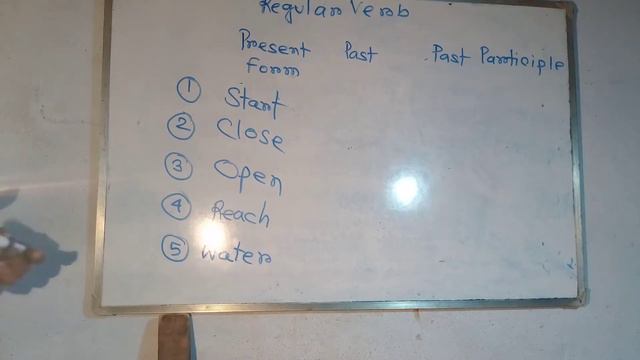 Regular Verb
Present Form Past Past Participle
① Start
② Close
③ Open
④ Reach
⑤ Water